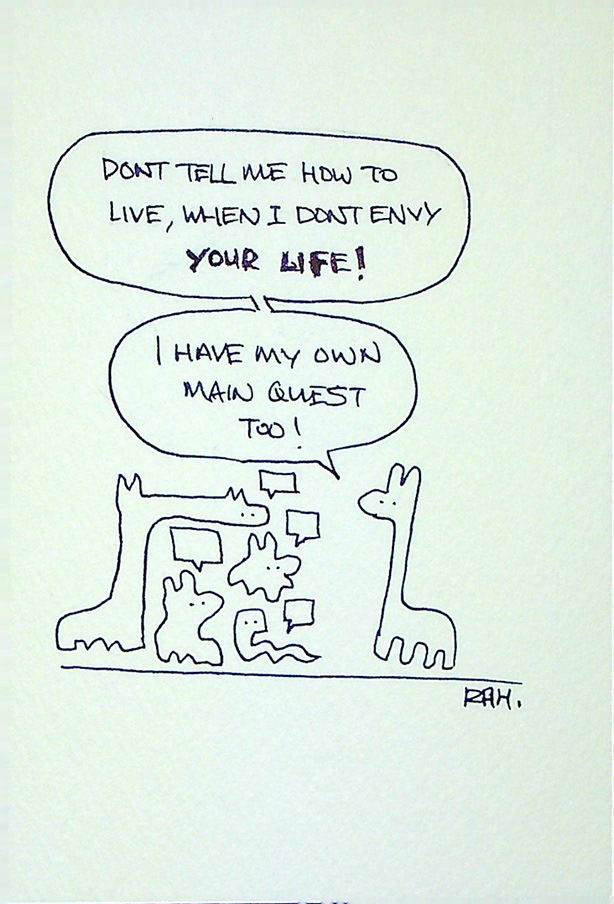 DONT TELL ME HOW TO
LIVE, WHEN I DONT ENVY
YOUR LIFE!
I HAVE MY OWN
MAIN QUEST
TOO!
RAH.